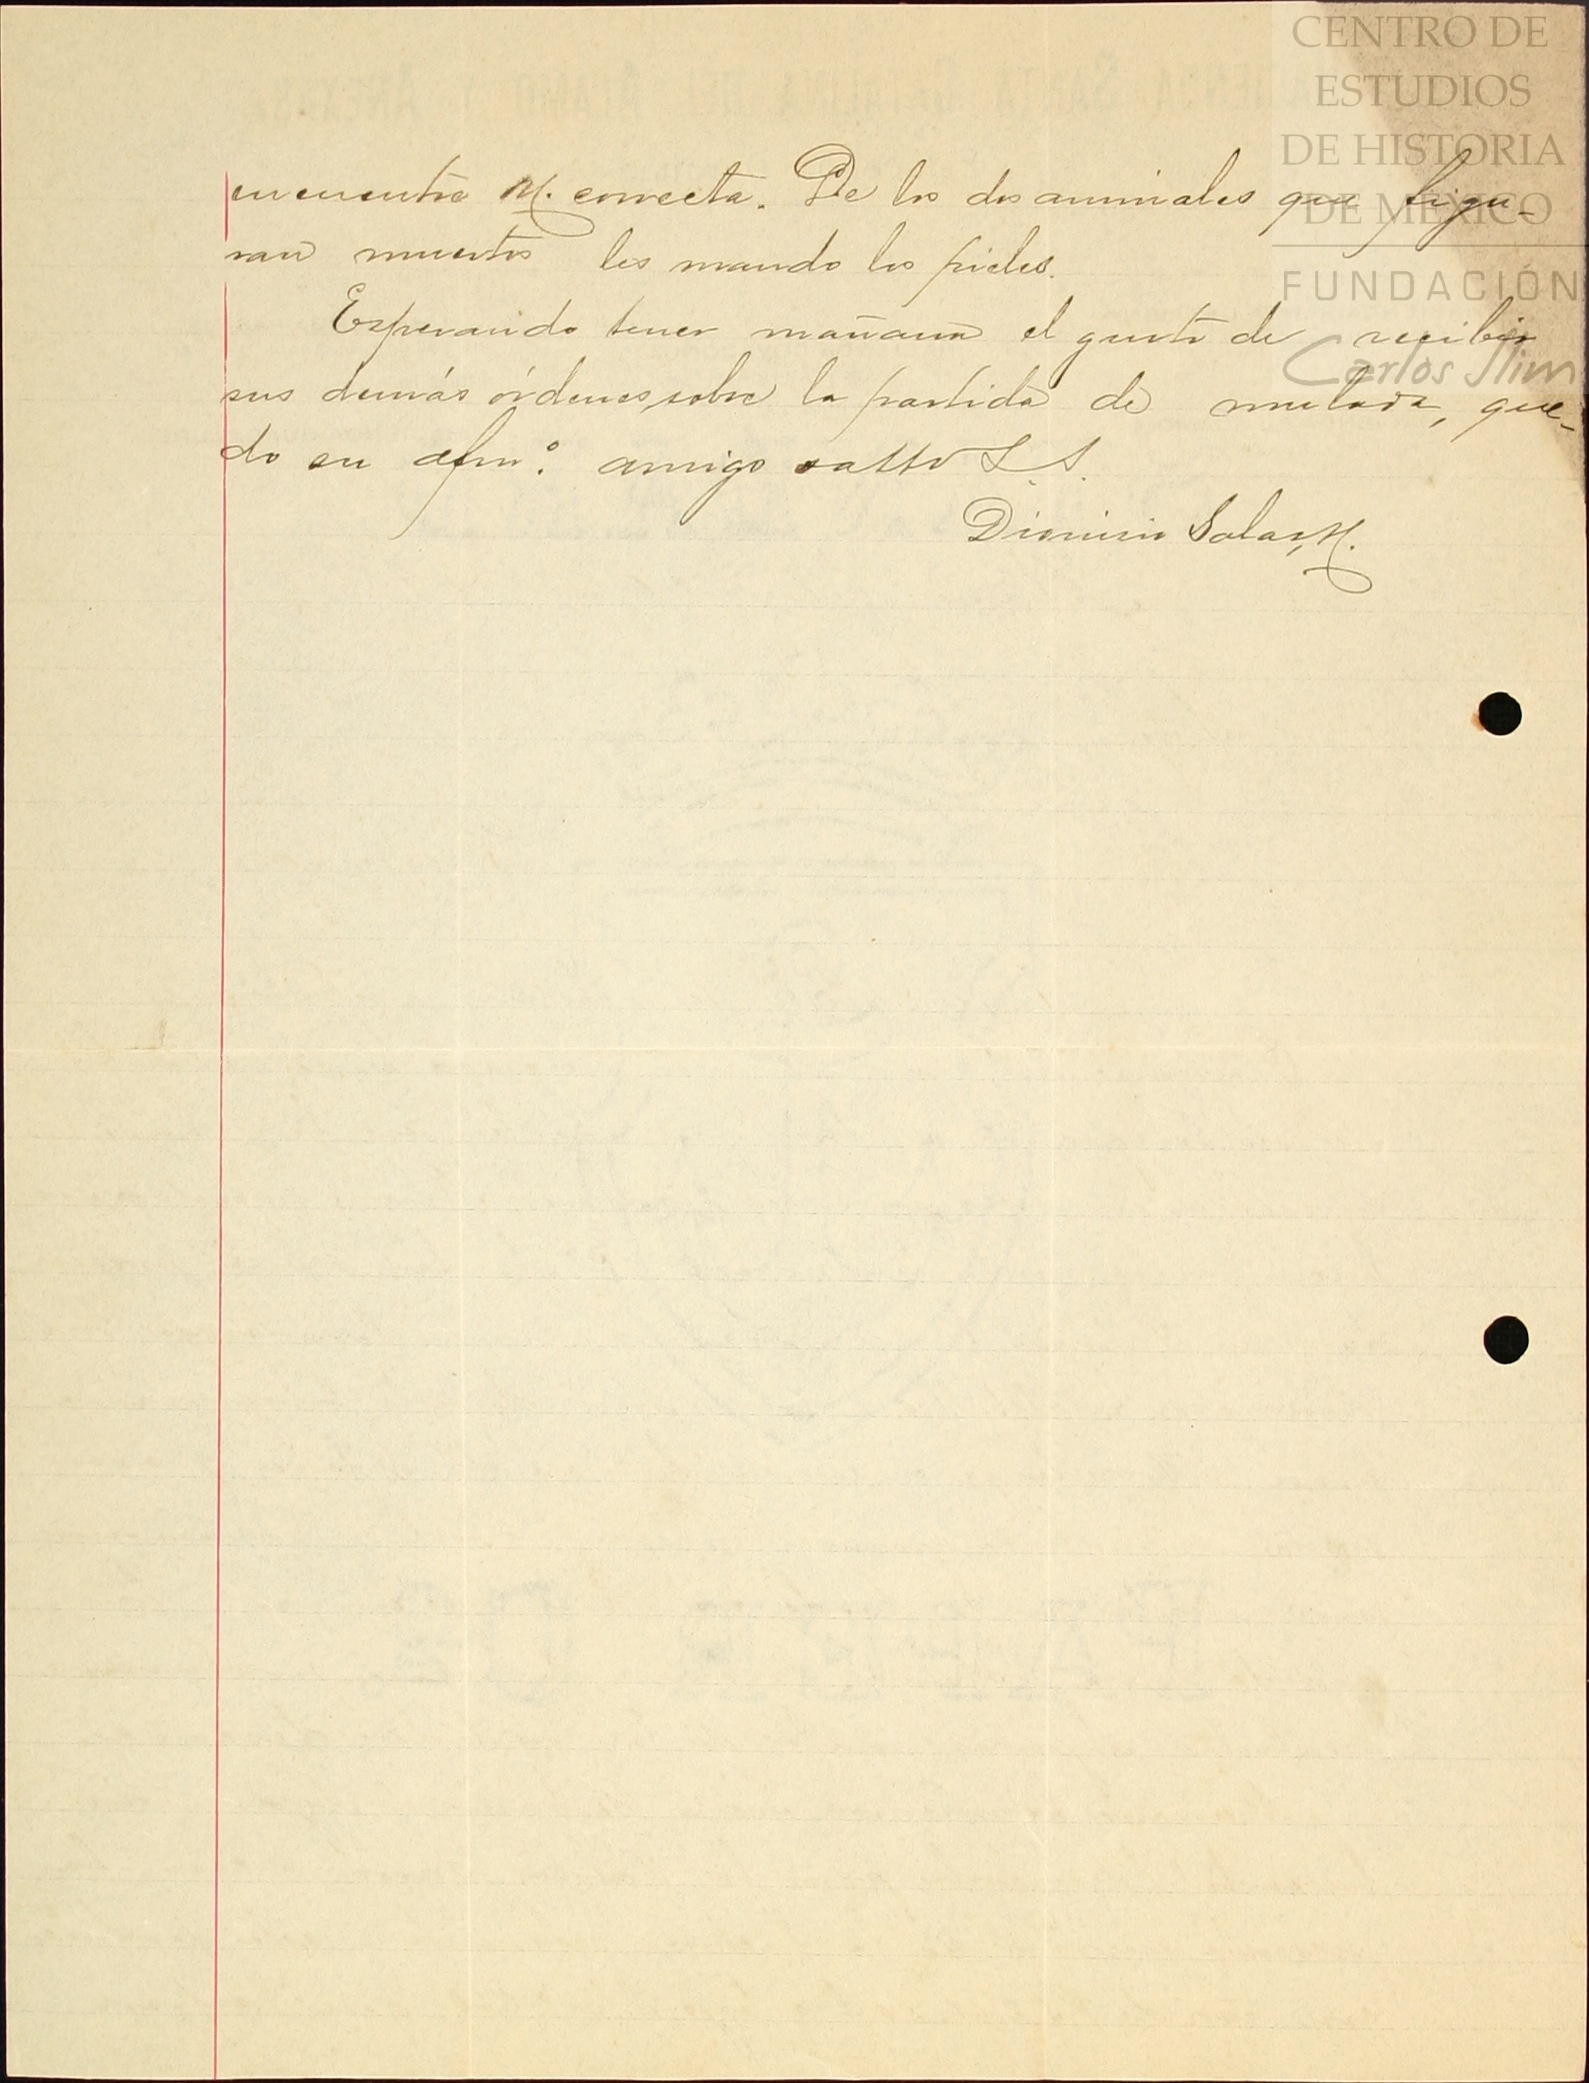 CENTRO DE
ESTUDIOS
DE HISTORIA
DE MÉXICO
FUNDACIÓN
Carlos Slim
encuentre U. correcta. De los dos animales que figu-
ran muertos les mando las pieles.
Esperando tener mañana el gusto de recibir
sus demás órdenes, sobre la partida de mulada, que-
do su afmo. amigo atto S. S.
Dionisio Salas, M.